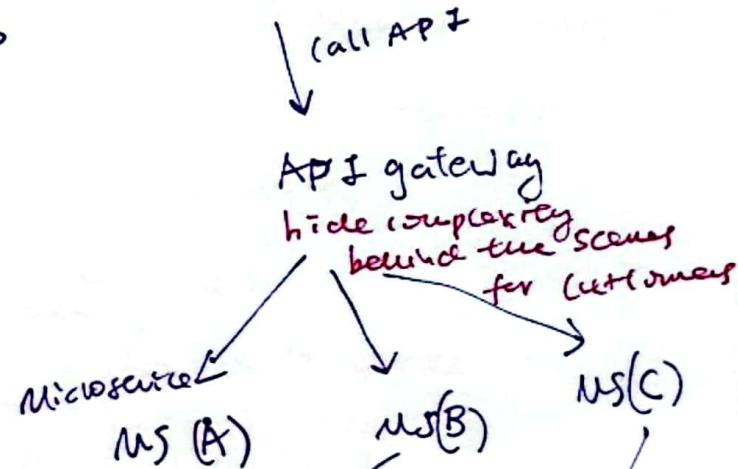 call API
API gateway
hide complexity
behind the scenes
for customers
Microservice
MS (A)
MS(B)
MS(C)